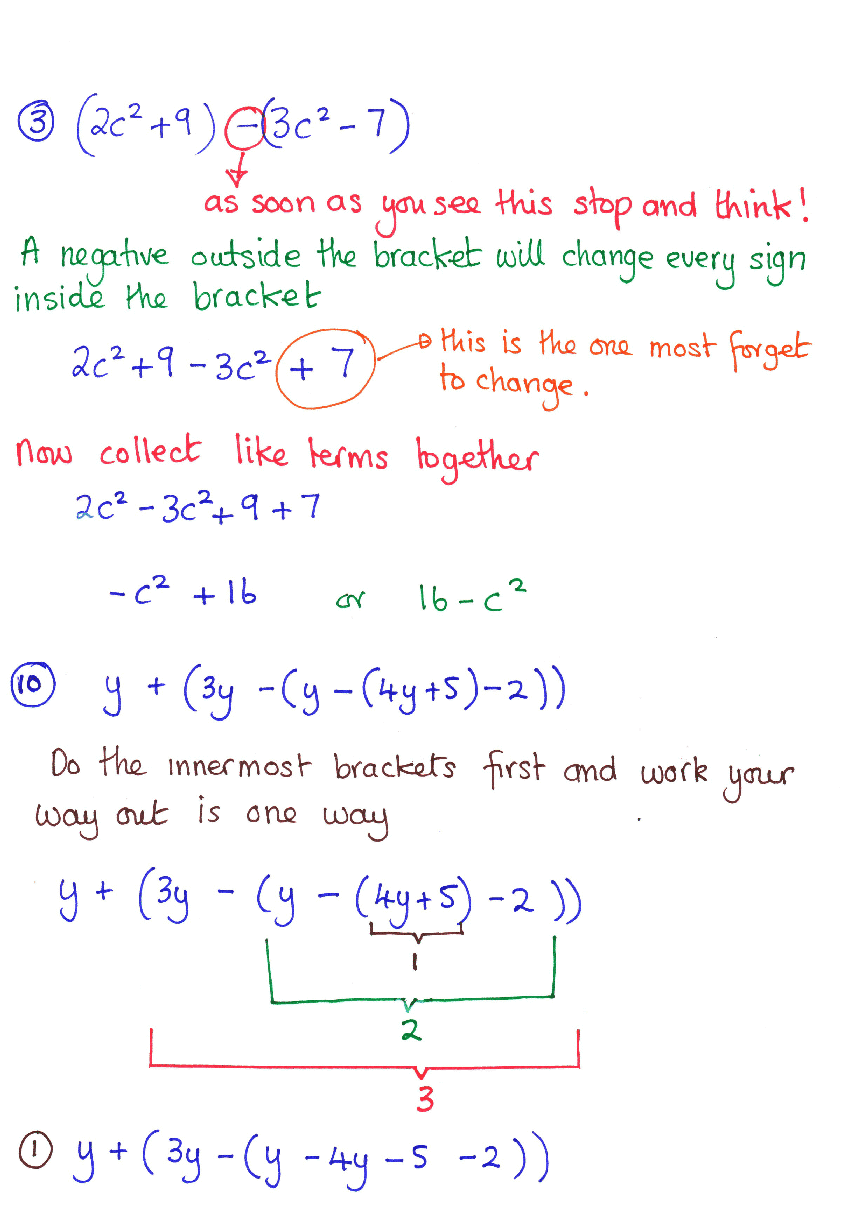 ③ (2c² + 9) - (3c² - 7)
as soon as you see this stop and think!
A negative outside the bracket will change every sign
inside the bracket
2c² + 9 - 3c² + 7
this is the one most forget
to change.
Now collect like terms together
2c² - 3c² + 9 + 7
-c² + 16 or 16 - c²
⑩ y + (3y - (y - (4y + 5) - 2))
Do the innermost brackets first and work your
way out is one way
y + (3y - (y - (4y + 5) - 2))
1
2
3
① y + (3y - (y - 4y - 5 - 2))